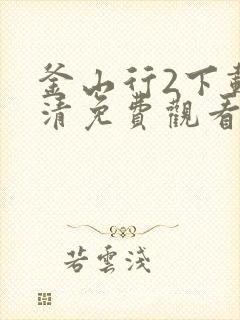 釜山行2下載
清免費觀看
若雲淺